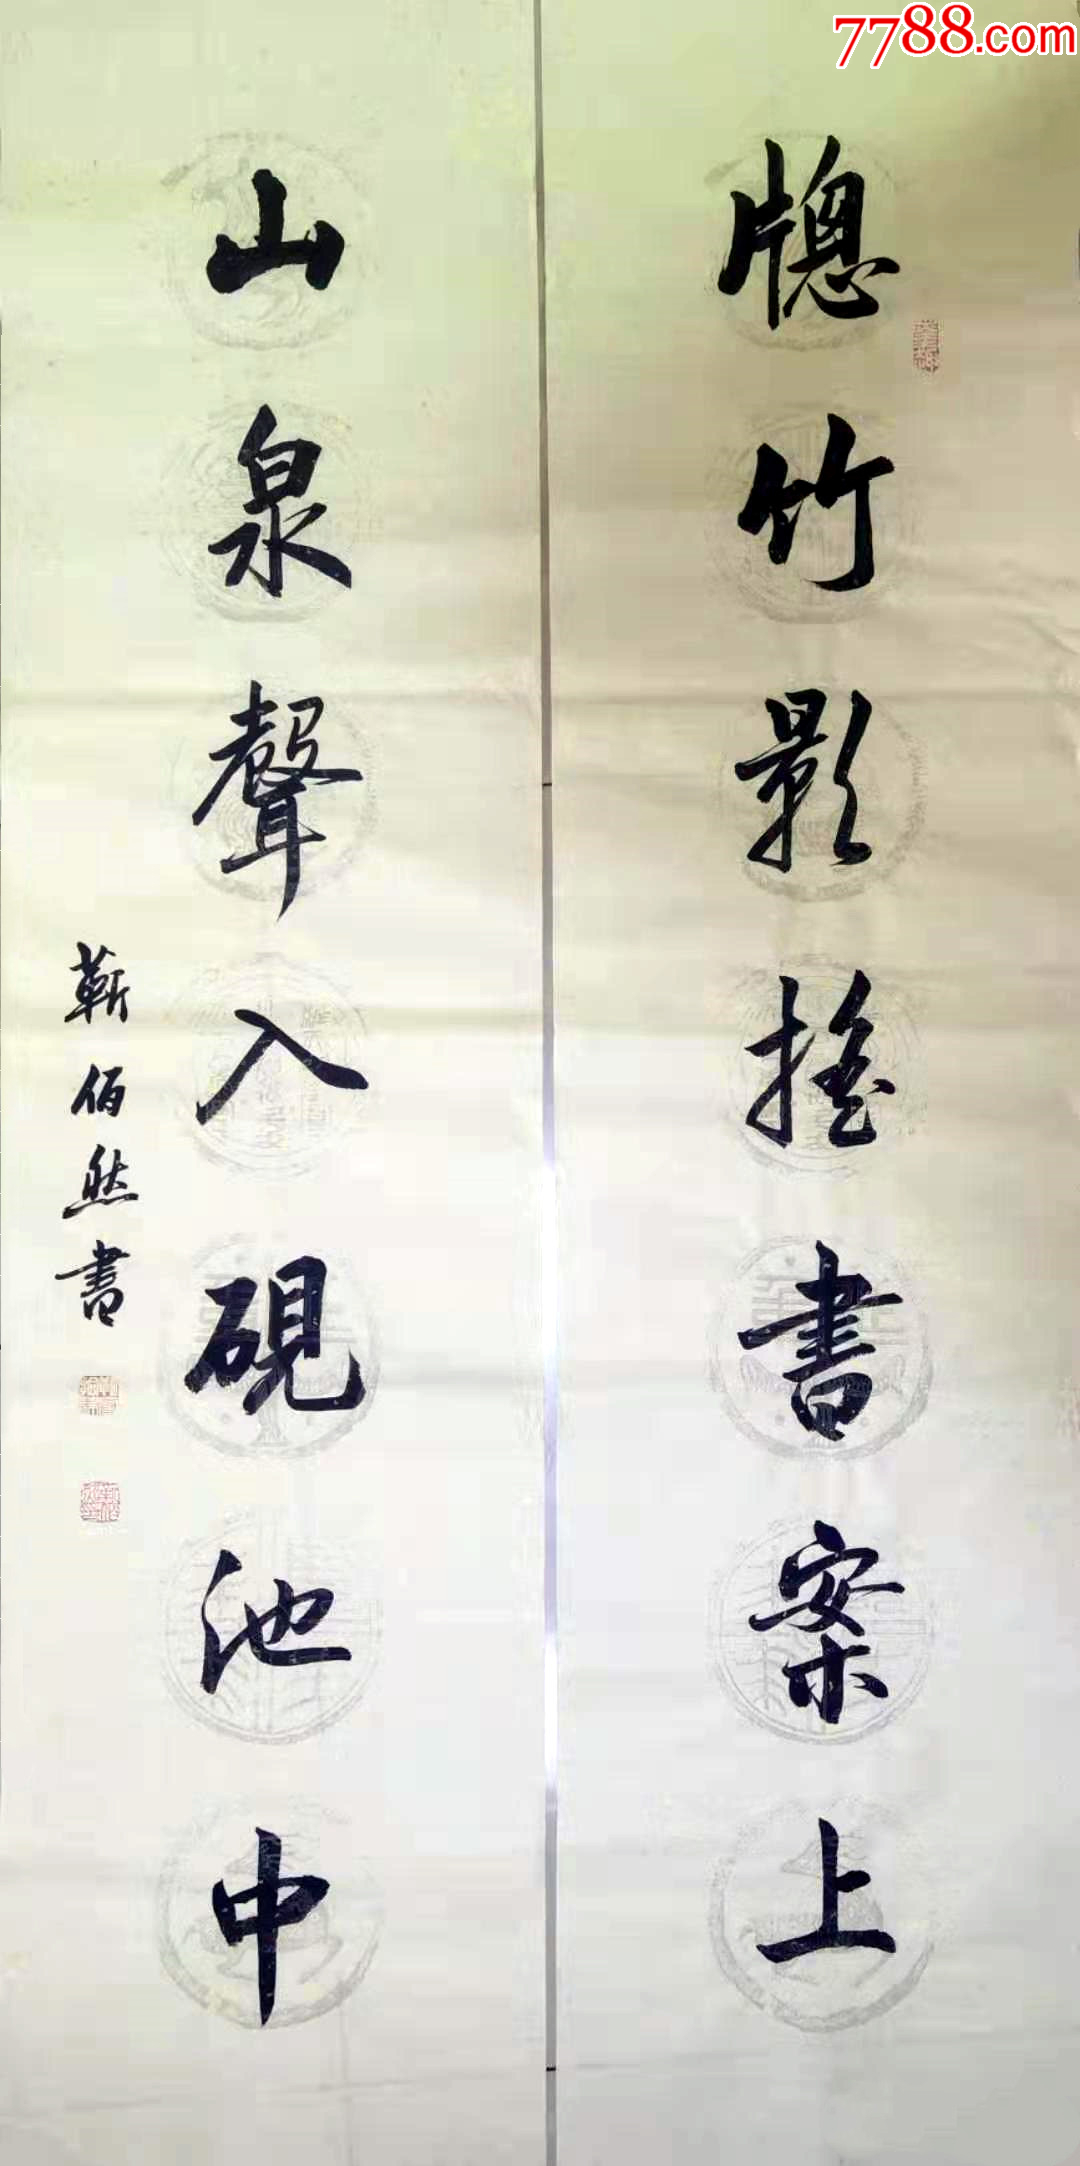 7788.com
牕竹影摇書案上
山泉聲入硯池中
蘄佰然書